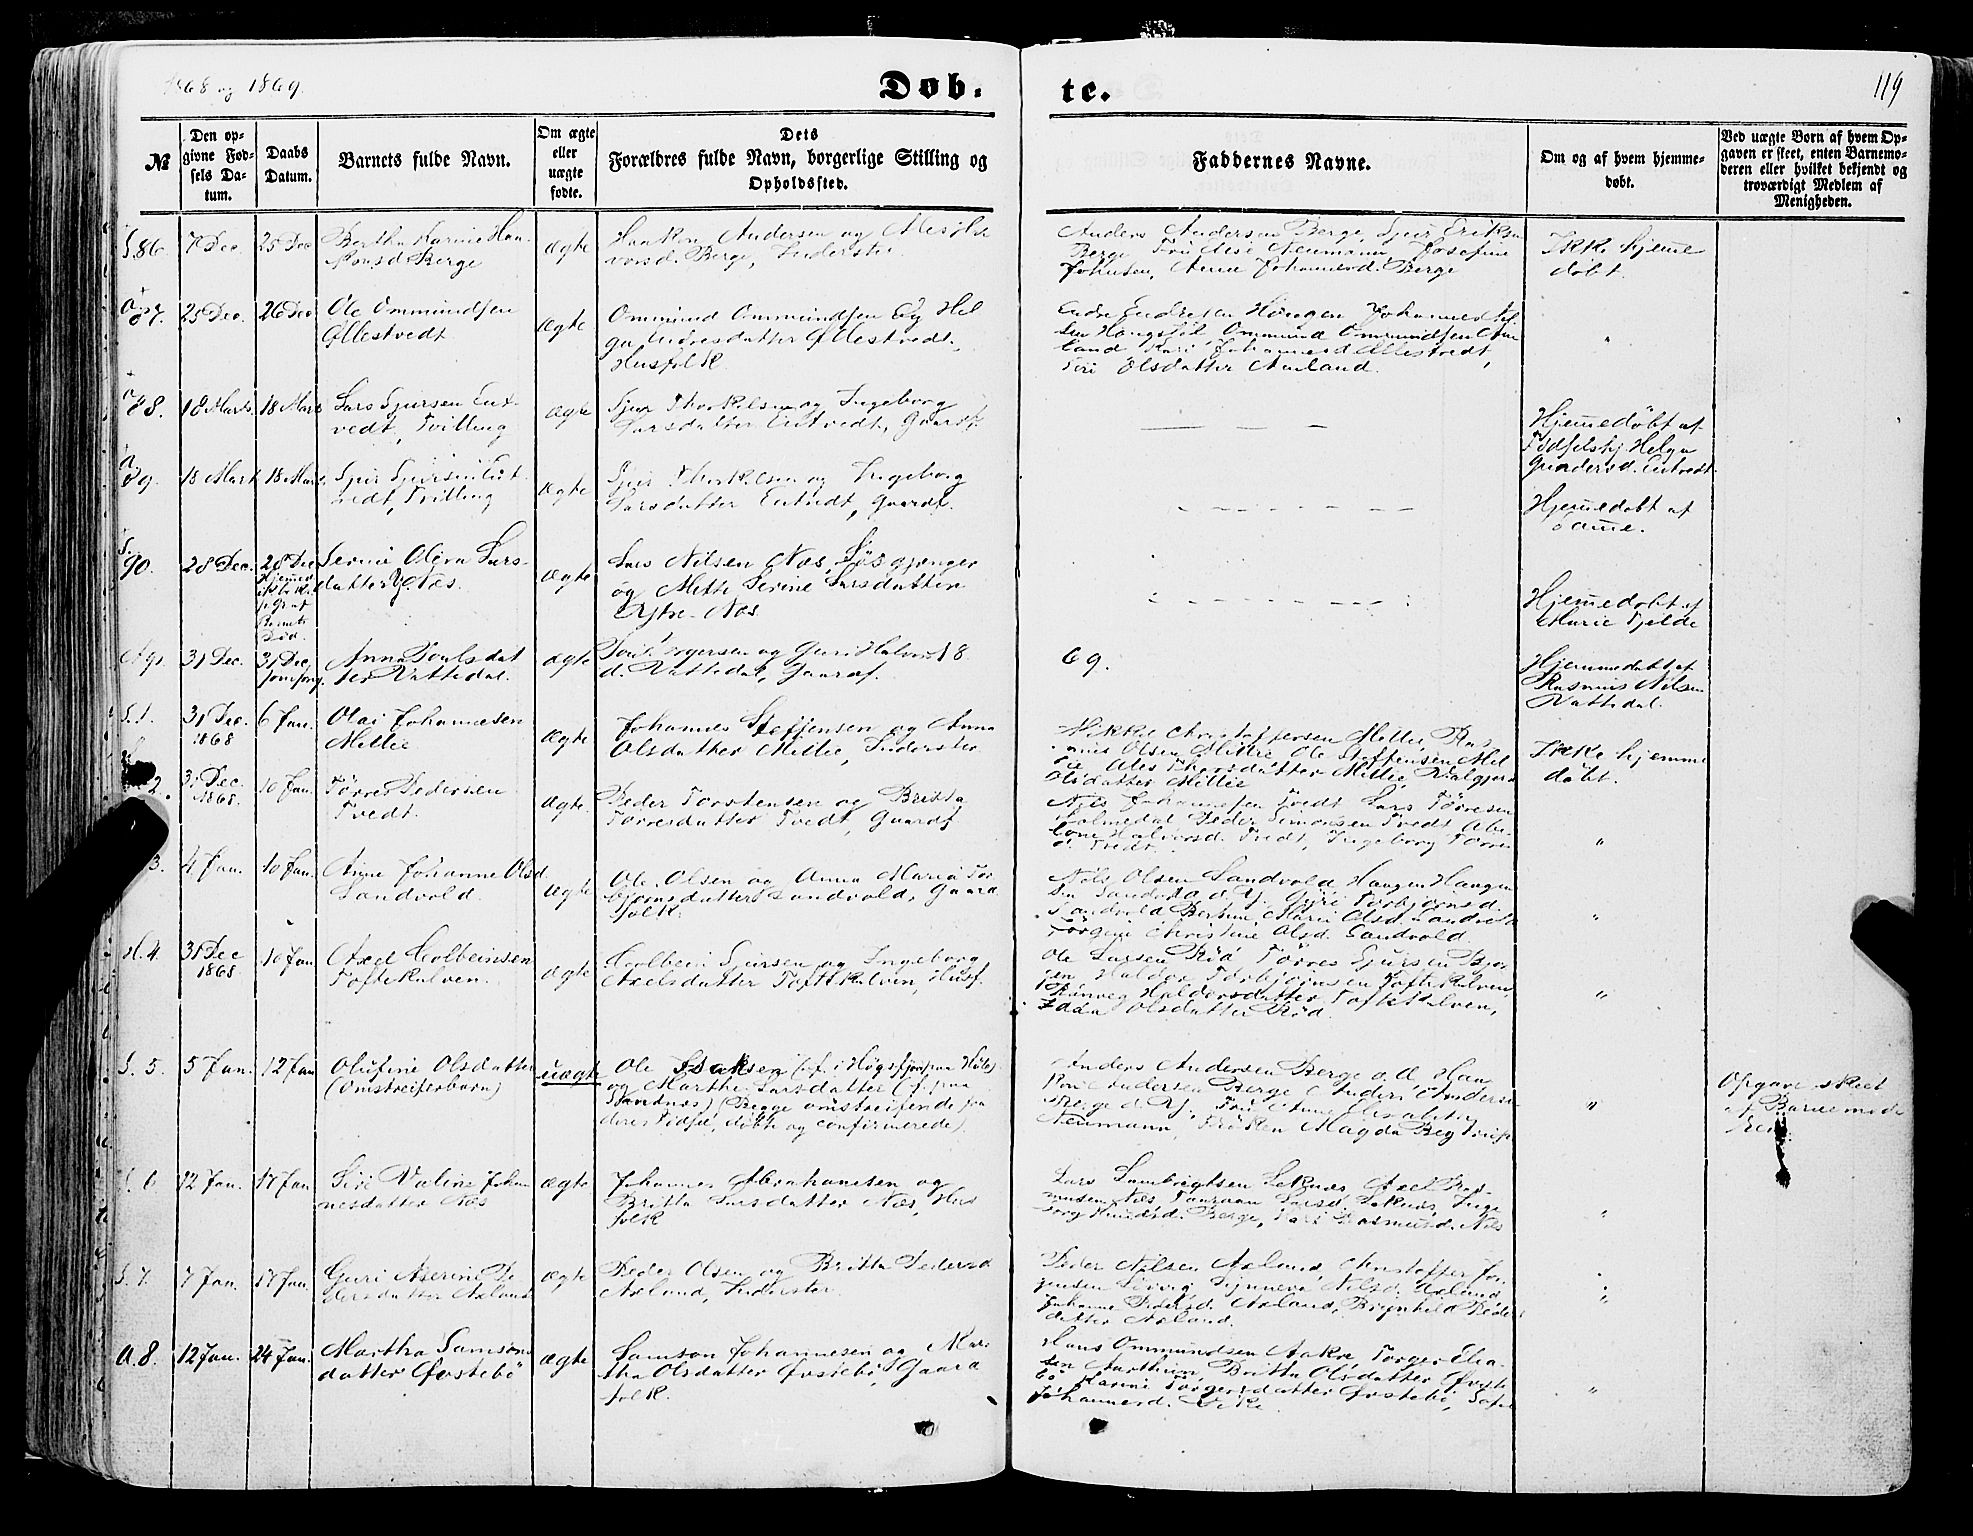 1868 og 1869.
Døb- te.
119
№
Den op-
givne Fød-
sels Da-
tum.
Daabs
Datum.
Barnets fulde Navn.
Om ægte
eller
uægte
fødte.
Dets
Forældres fulde Navn, borgerlige Stilling og
Opholdssted.
Faddernes Navne.
Om og af hvem hjemme-
døbt.
Ved uægte Børn af hvem Op-
gaven er skeet, enten Barnemo-
deren eller hvilket bekjendt og
troværdigt Medlem af
Menigheden.
S. 86. 7 Dec. 25 Dec
Bertha Karine Haa-
konsd. Berge
ægte
Haakon Andersen og
Berge, Inderster
Anders Andersen Berge, Sjur Eriksen
Berge Neumann, Josefine
Johnsen, Anna Johannesd. Berge
Ikke hjemme
døbt.
87. 25 Dec. 26 Dec
Ole Ommundsen
Øllestvedt
ægte
Ommund Ommundsen Og Hel
ga Endresdatter Øllestvedt,
Husfolk
Endre Endresen Haugen Johannes
Ommund Ommundsen
land Kari Johannesd Øllestvedt,
Siri Olsdatter Aurland.
"
88. 18 Marts. 18 Marts
Lars Sjursen Ent-
vedt, Tvilling
ægte
Sjur Thorkilsen og Ingeborg
Larsdatter Entvedt, Gaardf.
Hjemmedøbt af
Fødselshj Helga
Gundersd. Entvedt
89. 18 Mart 18 Mart
Sjur Sjursen Ent-
vedt, Tvilling
ægte
Sjur Thorkilsen og Ingeborg
Larsdatter Entvedt, Gaardf.
Hjemmedøbt af
Samme.
S. 90. 28 Dec. 28 Dec
Serine Oliva Lars-
datter Y. Næs.
ægte
Lars Nilsen Næs, Løsgjænger
og Mette Serine Larsdatter
Ytre-Næs
Hjemmedøbt af
Marie Tjelde
A 91. 31 Dec. 31 Dec.
Anna Poulsdat
ter Vattedal.
ægte
Poul Torgersen og Guri Halvor 18
d. Vattedal, Gaardf.
69.
Hjemmedøbt af
Rasmus Nilsen
Vattedal.
S. 1. 31 Dec. 1868 6 Jan.
Olai Johannesen
Mellie
ægte
Johannes Steffensen og Anna
Olsdatter Mellie, Inderster
Mikkel Christoffersen Mellie, Ras
mus Olsen Mellie Ole Steffensen Mel
Olsdatter Mellie
Ikke hjemme
døbt.
2. 31 Dec. 1868. 10 Jan.
Tørres Pedersen
Tvedt.
ægte.
Peder Torstensen og Britta
Tørresdatter Tvedt, Gaardf
Nils Johannesen Tvedt Lars Tørresen
Holmedal Peder Simonsen Tvedt, Abe-
lone Halvorsd. Tvedt, Ingeborg Tørres
d. Tvedt.
"
3. 4 Jan. 10 Jan.
Anne Johanne Olsd.
Sandvold.
ægte
Ole Olsen og Anna Maria Tor
bjørnsdatter Sandvold, Gaard
folk.
Nils Olsen Sandvold Haagen Haagen
sen Sandvold d. Y. Guri Torbjørnsd.
Sandvold Olsd. Sandvold
Jørgine Christine Olsd. Sandvold.
"
H. 4. 31 Dec 1868 10 Jan
Axel Kolbeinsen
Toftekalven.
ægte
Kolbein Sjursen og Ingeborg
Axelsdatter Toftekalven, Husf.
Ole Larsen Rød Tørres Sjursen Bjør
gen Haldor Torbjørnsen Toftekalven,
Rønneg Haldorsdatter Toftekalven,
Olsdatter Rød.
"
S. 5. 5 Jan. 12 Jan
Olufine Olsdatter
(Omstreiferbarn)
uægte
Ole Isaksen (f. i Høgsfjord paa Hole)
og Marthe Larsdatter (f. paa
Sandnæs) (Begge omstreifende fra
deres Fødsel, døbte og confirmerede)
Anders Andersen Berge d. Æ. Haa
kon Andersen Berge Anders Anderse
Berge d. Y. Fru Anne Elisabeth
Neumann, Frøken Magda
"
Opgave skeet
af Barnemode
ren.
S. 6 12 Jan. 17 Jan.
Siri Valine Johan
nesdatter Næs
ægte
Johannes Abrahamsen og
Britta Larsdatter Næs, Hus
folk
Lars Lambrigtsen Seknæs Axel Ras-
musen Næs Larsd. Seknæs, Inge
borg Knudsd. Berge, Kari Rasmusd. Næs
"
S. 7. 7 Jan. 17 Jan.
Guri Aserine Pe
dersdatter Axland
ægte
Peder Olsen og Britta Pedersd
Axland, Inderster.
Peder Nilsen Axland, Christoffer Jør
gensen Synneva Nilsd. Axland,
Johanne Pedersd. Axland, Brynhild Peders
datter Axland.
"
A. 8. 12 Jan. 24 Jan.
Martha Samsons
datter Øvstebø
ægte
Samson Johannesen og Mar
tha Olsdatter Øvstebø, Gaard
folk.
Hans Ommundsen Aakre Torger Elia
sen Aartun, Britta Olsdatter Øvste
bø Karine Torgersdatter Øvstebø,
Johannesd.
"